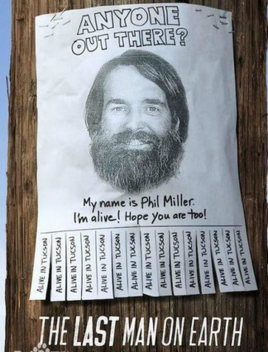 ANYONE
OUT THERE?
My name is Phil Miller.
I'm alive! Hope you are too!
ALIVE IN TUCSON
ALIVE IN TUCSON
ALIVE IN TUCSON
ALIVE IN TUCSON
ALIVE IN TUCSON
ALIVE IN TUCSON
ALIVE IN TUCSON
ALIVE IN TUCSON
ALIVE IN TUCSON
ALIVE IN TUCSON
ALIVE IN TUCSON
ALIVE IN TUCSON
ALIVE IN TUCSON
ALIVE IN TUCSON
THE LAST MAN ON EARTH